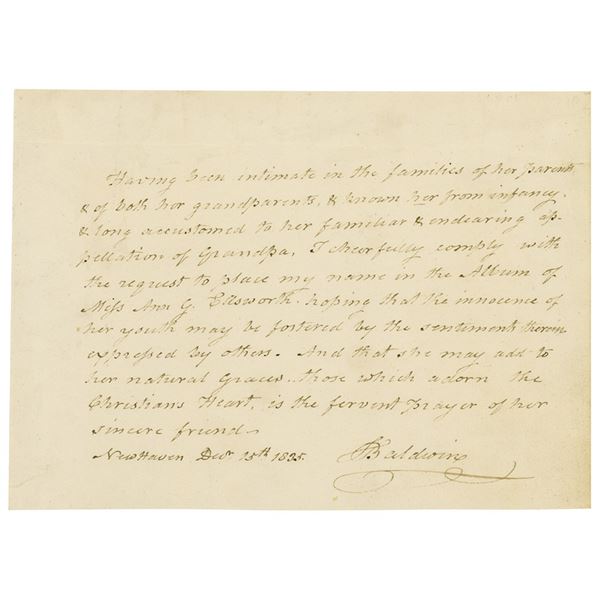 Having been intimate in the families of her Parents
& of both her grandparents, & known her from infancy.
& long accustomed to her familiar & endearing ap-
pellation of Grandpa, I cheerfully comply with
the request to place my name in the Album of
Miss Ann G. Ellsworth. hoping that the innocence of
her youth may be fostered by the sentiments therein
expressed by others. And that she may add to
her natural Graces. those which adorn the
Christians Heart, is the fervent Prayer of her
sincere friend
NewHaven Decr 15th 1835. Baldwin